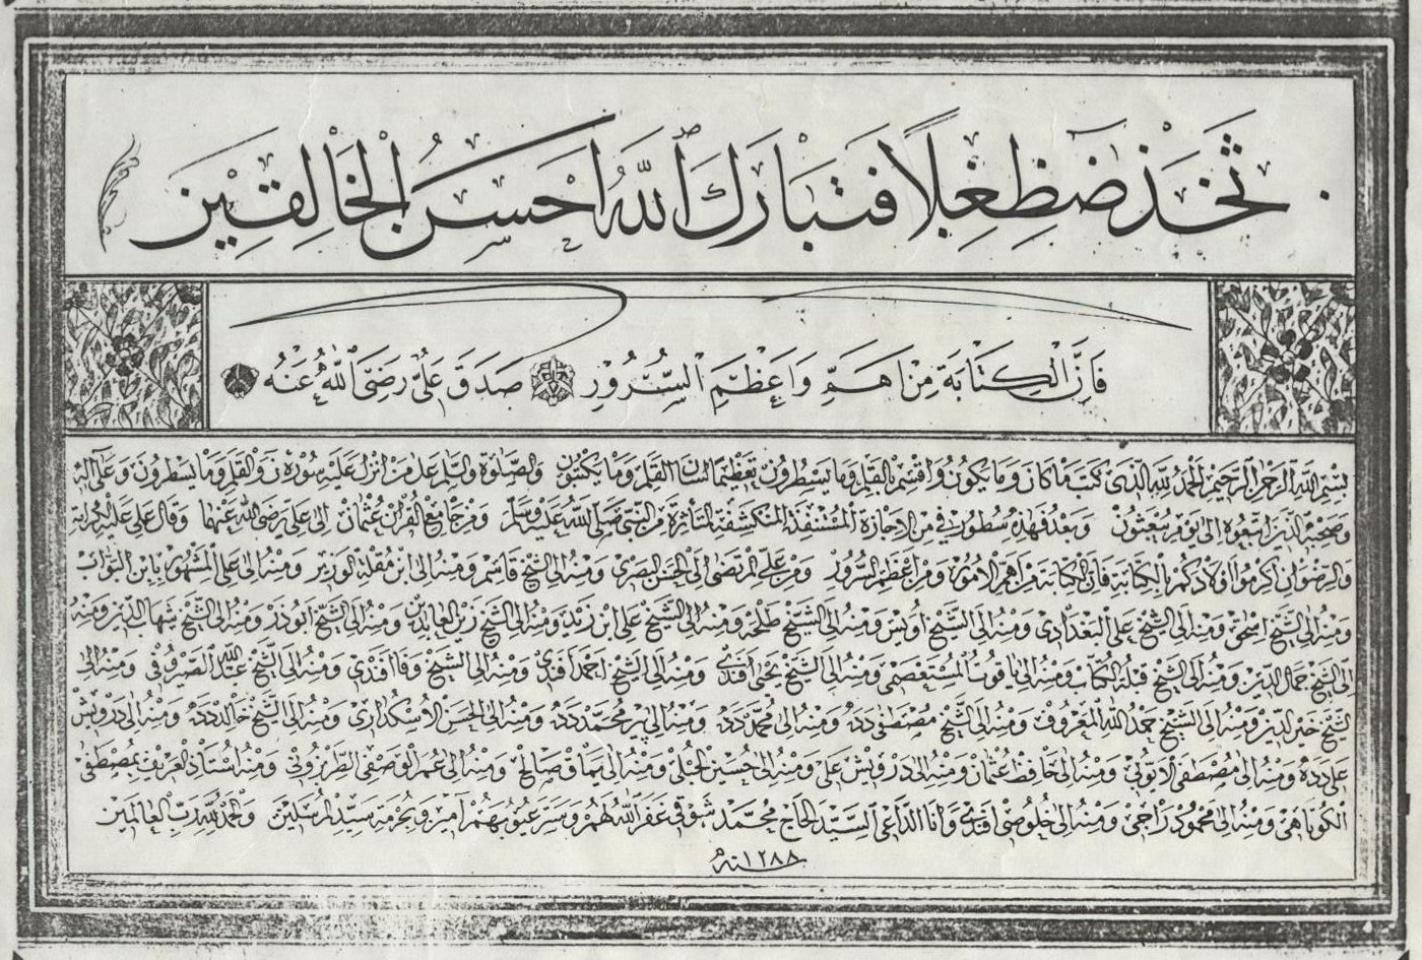 ثخذ ضظغلا فتبارك الله احسن الخالقين
فان الكتابة من اهم واعظم السرور صدق علي رضي الله عنه
بسم الله الرحمن الرحيم الحمد لله الذي كتب ما كان وما يكون واقسم بالقلم وما يسطرون تعظيما لشان القلم وما يكتبون والصلوة والسلم على من انزل عليه سورة ن والقلم وما يسطرون وعلى اله
وصحبه الذين اتبعوه الى يوم يبعثون وبعد فهذه سطور في من الاجازة المتأثرة من النبي صلى الله عليه وسلم ومن جامع القرآن عثمان الى علي رضي الله عنهما وقال علي عليه
والرضوان اكرموا اولادكم بالكتابة فان الكتابة من اهم الامور ومن اعظم السرور ومن علي المرتضى الى الحسن البصري ومنه الى الشيخ قاسم ومنه الى ابن مقلة الوزير ومنه الى علي المشهور بابن البواب
ومنه الى الشيخ اسحق ومنه الى الشيخ علي البغدادي ومنه الى الشيخ اويس ومنه الى الشيخ طلحه ومنه الى الشيخ علي ابن زيد ومنه الى الشيخ زين العابدين ومنه الى الشيخ ابوذر ومنه الى الشيخ شهاب الدين ومنه
الى الشيخ جمال الدين ومنه الى الشيخ قبلة الكتاب ومنه الى ياقوت المستعصمي ومنه الى الشيخ يحيى افندي ومنه الى الشيخ احمد افندي ومنه الى الشيخ وفا افندي ومنه الى الشيخ عبد الله الصيرفي ومنه الى
الشيخ خير الدين ومنه الى الشيخ حمد الله المعروف ومنه الى الشيخ مصطفى دده ومنه الى محمد دده ومنه الى پير محمد دده ومنه الى الحسن الاسكداري ومنه الى الشيخ خالد دده ومنه الى درويش
علي دده ومنه الى مصطفى الايوبي ومنه الى حافظ عثمان ومنه الى درويش علي ومنه الى حسين الحبلي ومنه الى صالح ومنه الى عمر الوصفي الطرابزوني ومنه استاذ العريف بمصطفى
الكوتاهي ومنه الى محمود راجي ومنه الى خلوصي افندي وانا الداعي السيد الحاج محمد شوقي غفر الله لهم وستر عيوبهم امين وبحرمة سيد المرسلين والحمد لله رب العالمين
سنه ١٢٨٨